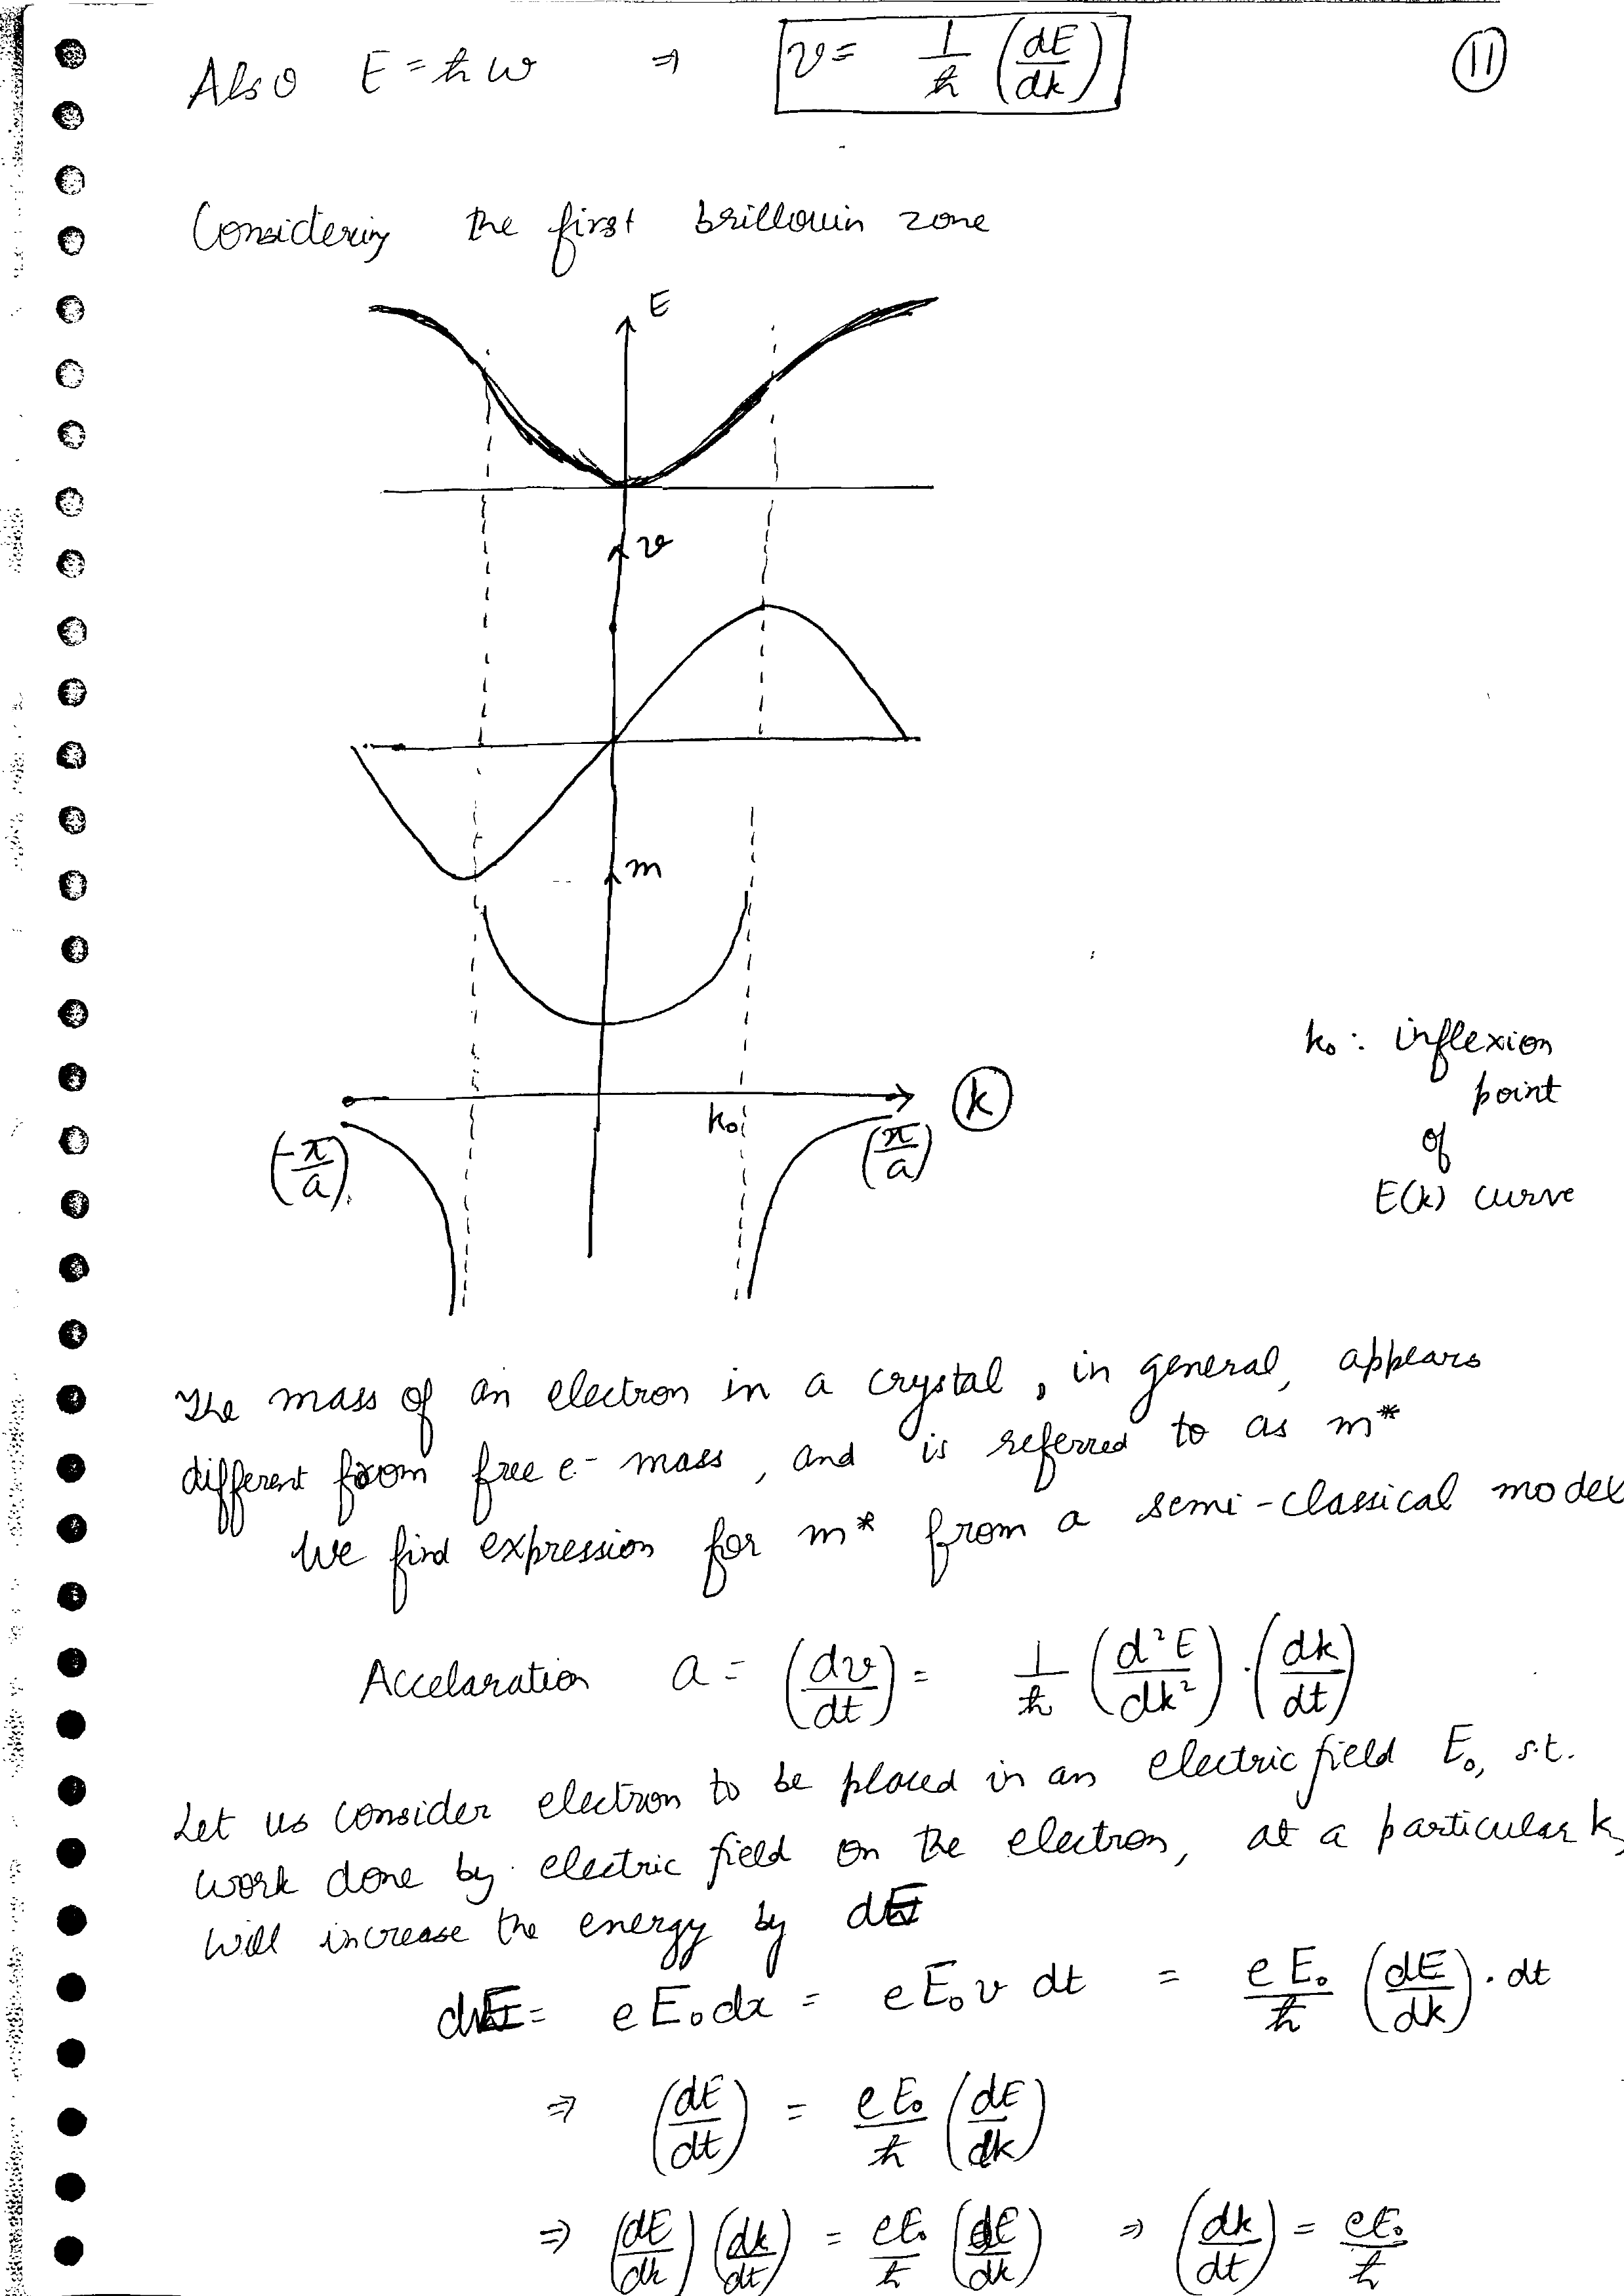 Also E = ħω ⇒ v = 1/ħ (dE/dk) 11
Considering the first brillouin zone
E
v
m
k₀ : inflexion
point
of
E(k) curve
k
k₀
(-π/a)
(π/a)
The mass of an electron in a crystal, in general, appears
different from free e⁻ mass, and is referred to as m*
We find expression for m* from a semi-classical model
Accelaration a = (dv/dt) = 1/ħ (d²E/dk²) · (dk/dt)
Let us consider electron to be placed in an electric field E₀, s.t.
work done by electric field on the electron, at a particular k,
will increase the energy by dE
dE = e E₀ dx = e E₀ v dt = e E₀/ħ (dE/dk) · dt
⇒ (dE/dt) = e E₀/ħ (dE/dk)
⇒ (dE/dk) (dk/dt) = eE₀/ħ (dE/dk) ⇒ (dk/dt) = eE₀/ħ